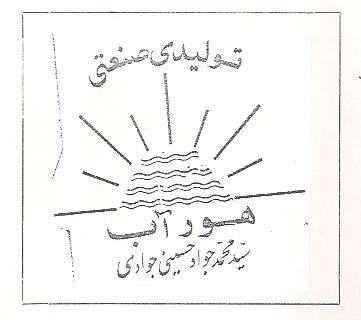 تولیدی صنعتی
هور آب
سید محمد جواد حسینی جوادی